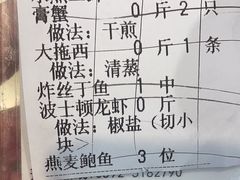 膏蟹 0 斤 2 只
做法：干煎
大拖西 0 斤 1 条
做法：清蒸
炸丝丁鱼 1 中
波士顿龙虾 0 斤
做法：椒盐（切小
块>
燕麦鲍鱼 3 位